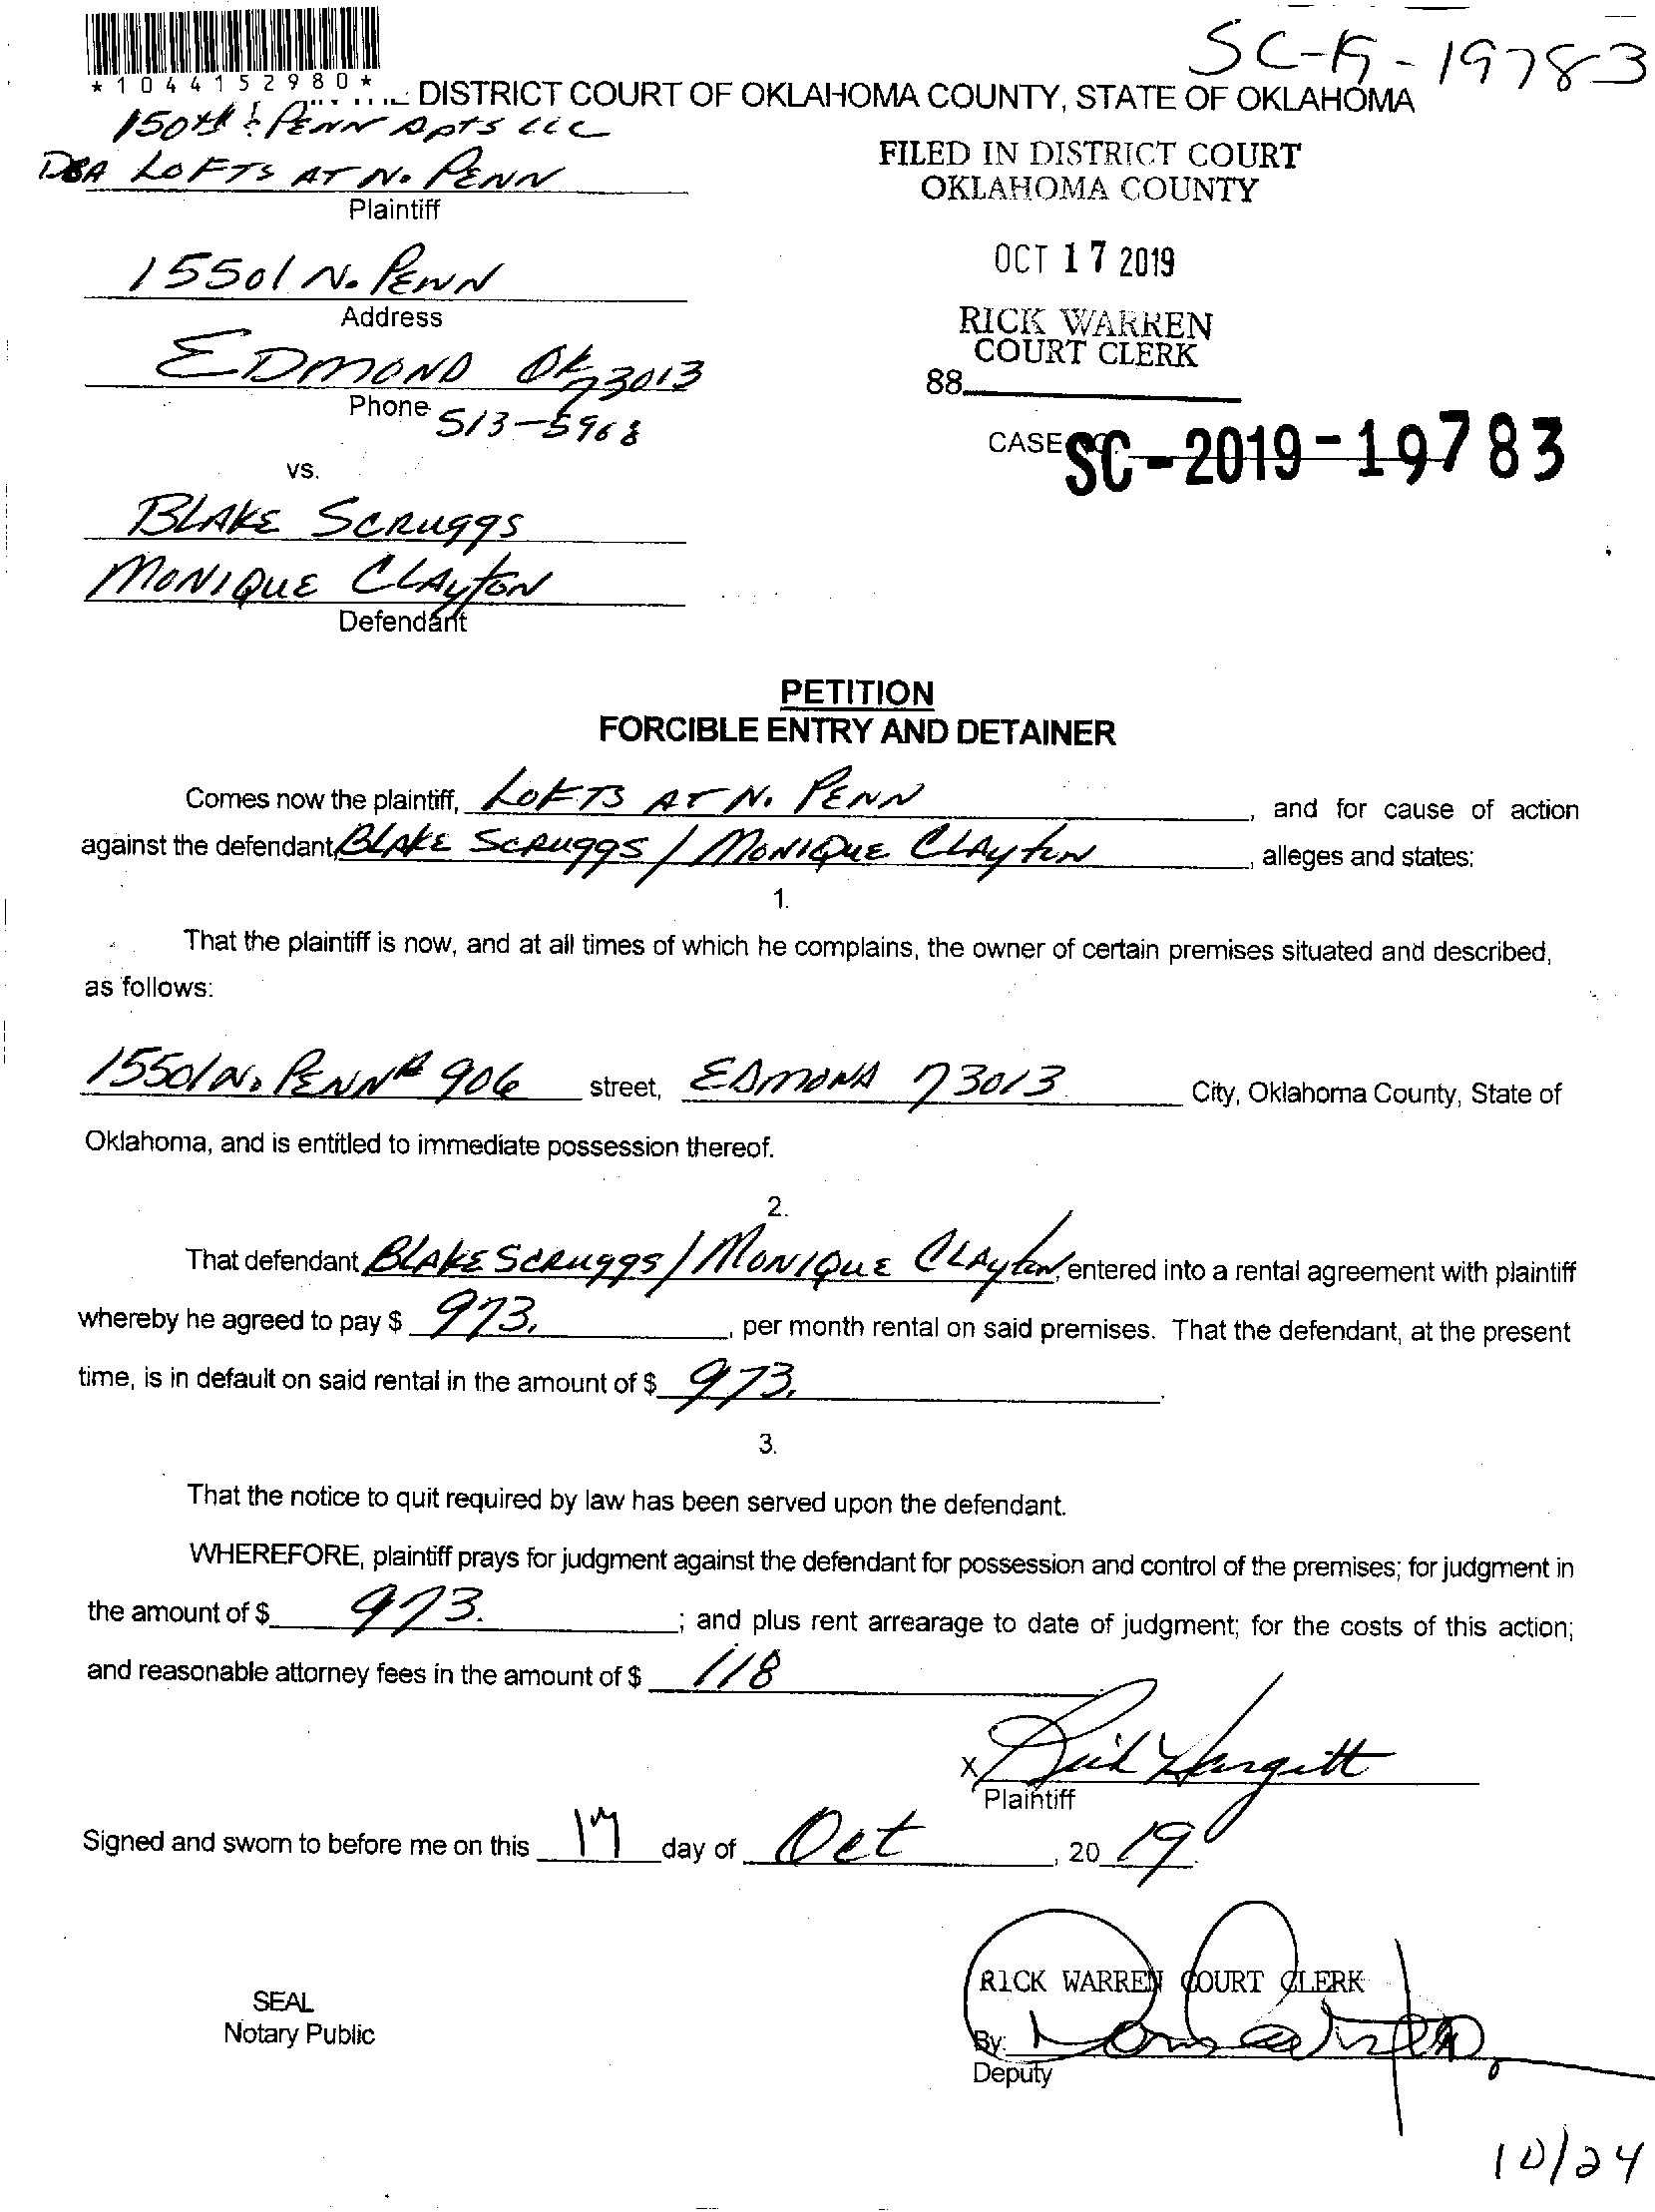 SC-19-19783
*1044152980*
DISTRICT COURT OF OKLAHOMA COUNTY, STATE OF OKLAHOMA
150th & PENN Apts LLC
DBA LOFTS AT N. PENN
Plaintiff
FILED IN DISTRICT COURT
OKLAHOMA COUNTY
OCT 17 2019
RICK WARREN
COURT CLERK
88
CASE SC-2019-19783
15501 N. PENN
Address
EDMOND OK 73013
Phone 513-5968
vs.
BLAKE SCRUGGS
MONIQUE CLAYTON
Defendant
PETITION
FORCIBLE ENTRY AND DETAINER
Comes now the plaintiff, LOFTS AT N. PENN, and for cause of action
against the defendant, BLAKE SCRUGGS / MONIQUE CLAYTON, alleges and states:
1.
That the plaintiff is now, and at all times of which he complains, the owner of certain premises situated and described,
as follows:
15501 N. PENN # 906 street, EDMOND 73013 City, Oklahoma County, State of
Oklahoma, and is entitled to immediate possession thereof.
2.
That defendant, BLAKE SCRUGGS / MONIQUE CLAYTON, entered into a rental agreement with plaintiff
whereby he agreed to pay $ 973., per month rental on said premises. That the defendant, at the present
time, is in default on said rental in the amount of $ 973.
3.
That the notice to quit required by law has been served upon the defendant.
WHEREFORE, plaintiff prays for judgment against the defendant for possession and control of the premises; for judgment in
the amount of $ 973. ; and plus rent arrearage to date of judgment; for the costs of this action;
and reasonable attorney fees in the amount of $ 118
X Rick Hargitt
Plaintiff
Signed and sworn to before me on this 17 day of Oct, 2019.
RICK WARREN COURT CLERK
SEAL
Notary Public
By:
Deputy
10/24